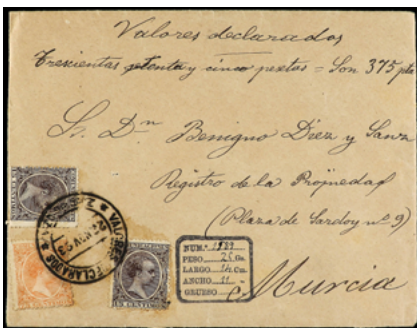 Valores declarados
Trescientas setenta y cinco pesetas = Son 375 pts
Sr. Dn Benigno Diez y Sanz
Registro de la Propiedad
(Plaza de Sardoy nº 9)
Murcia
VALORES DECLARADOS
NUM.º 1989
PESO 25 Gs.
LARGO 14 Cm.
ANCHO 11 "
GRUESO
15 CENTIMOS